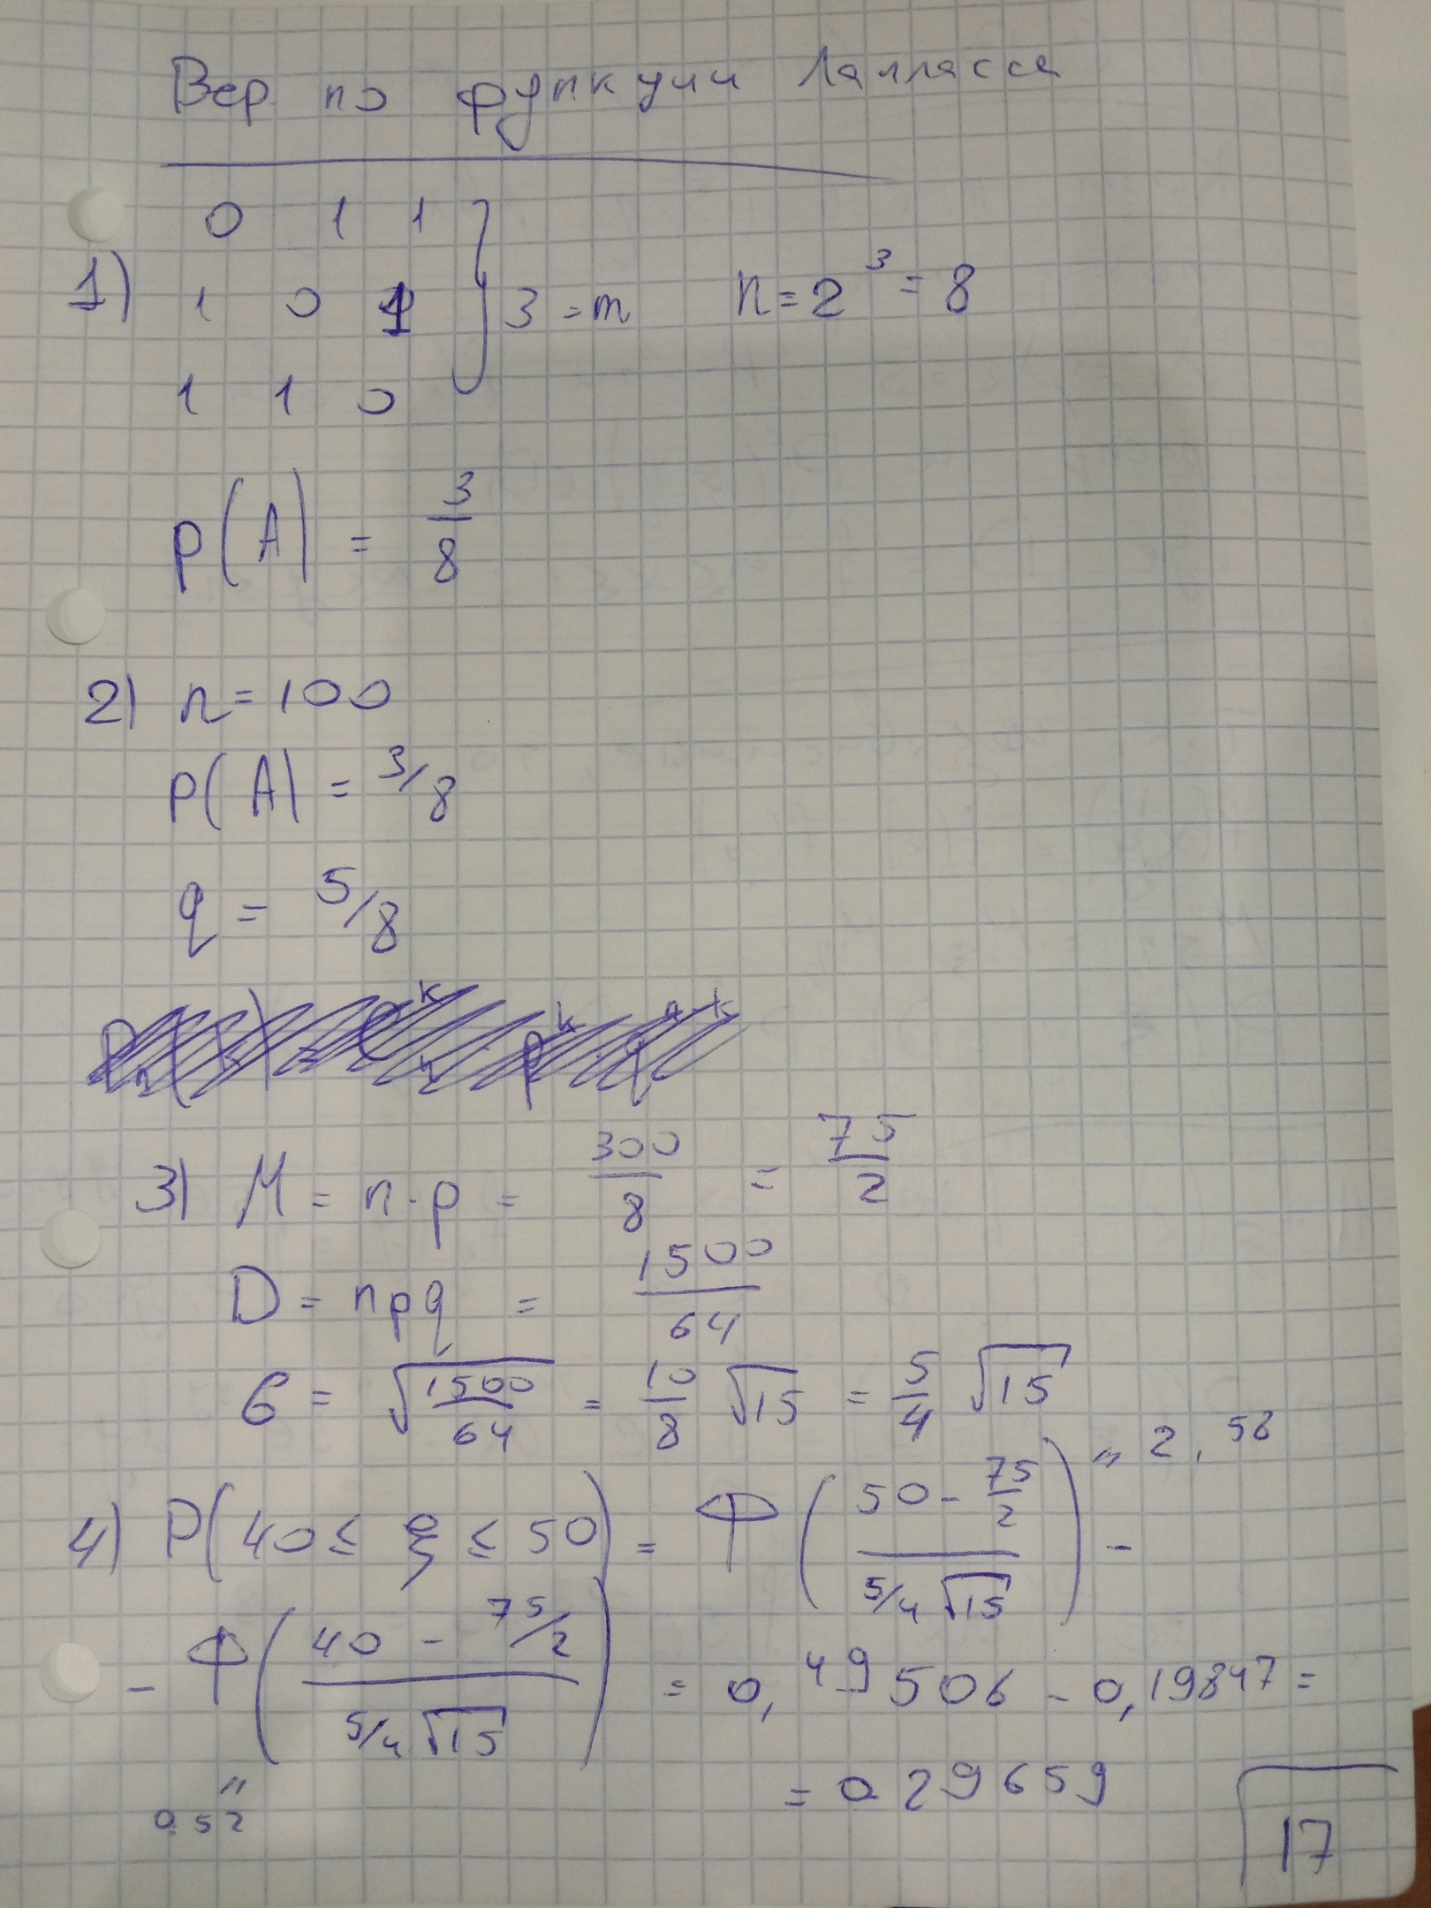 Вер по функции Лапласса
0 1 1
1) 1 0 1 } 3 = m n = 2³ = 8
1 1 0
P(A) = 3/8
2) n = 100
P(A) = 3/8
q = 5/8
3) M = n·p = 300/8 = 75/2
D = npq = 1500/64
σ = √(1500/64) = 10/8 √15 = 5/4 √15
4) P(40 ≤ ξ ≤ 50) = Ф((50 - 75/2)/(5/4 √15)) - " 2,58
- Ф((40 - 75/2)/(5/4 √15)) = 0,49506 - 0,19847 =
= 0.29659
"
0.52
17